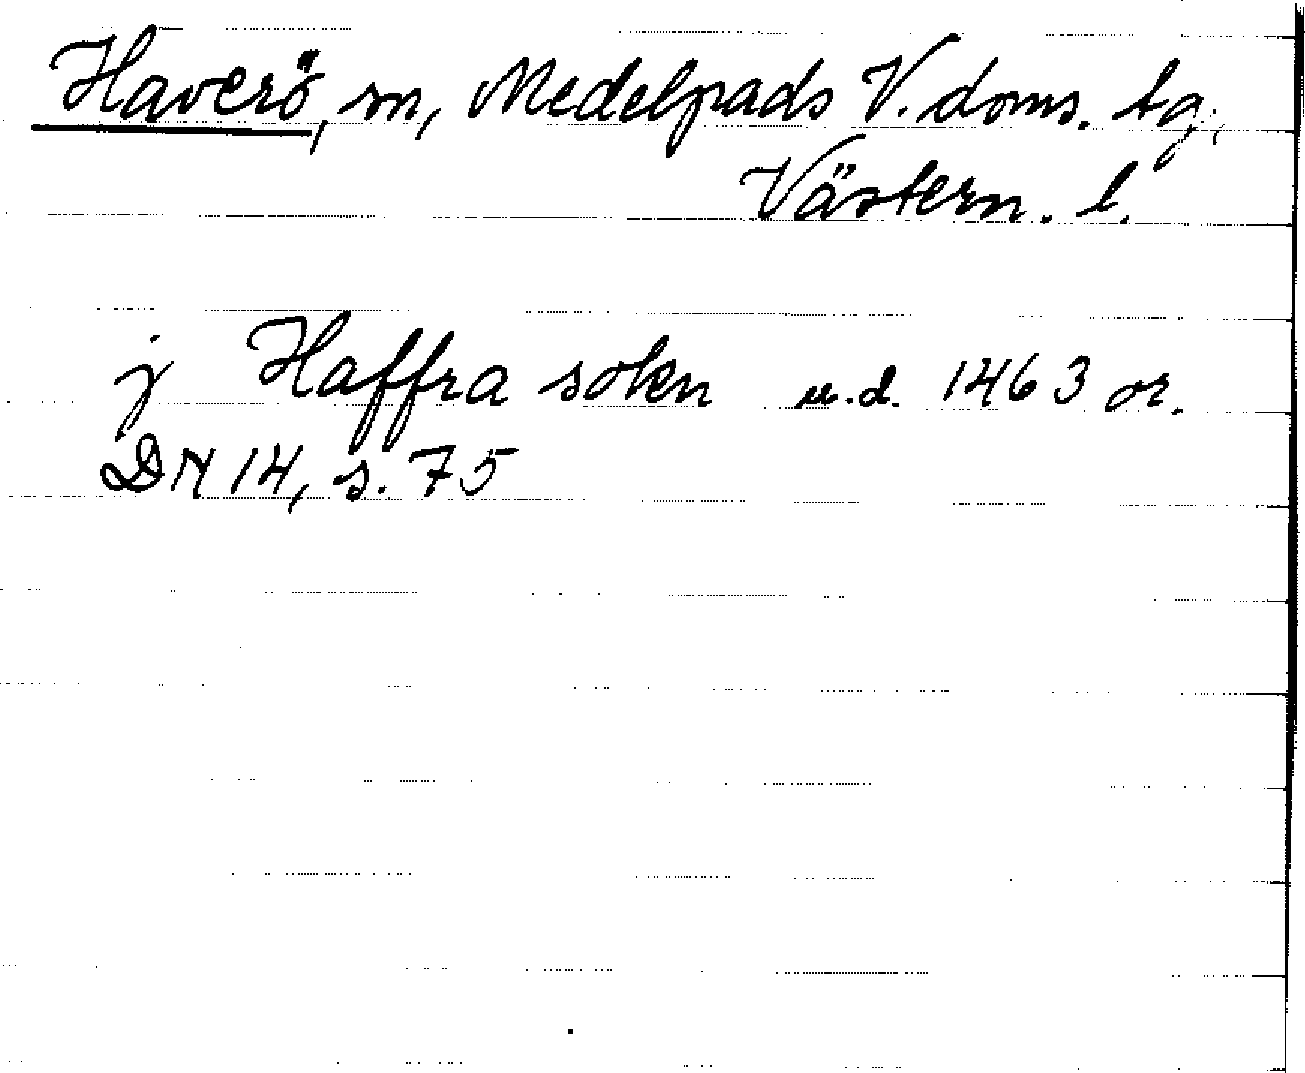 Haverö, sn, Medelpads V. doms. tg,
Västern. l.
j Haffra sokn u.d. 1463 or.
DN 14, s. 75